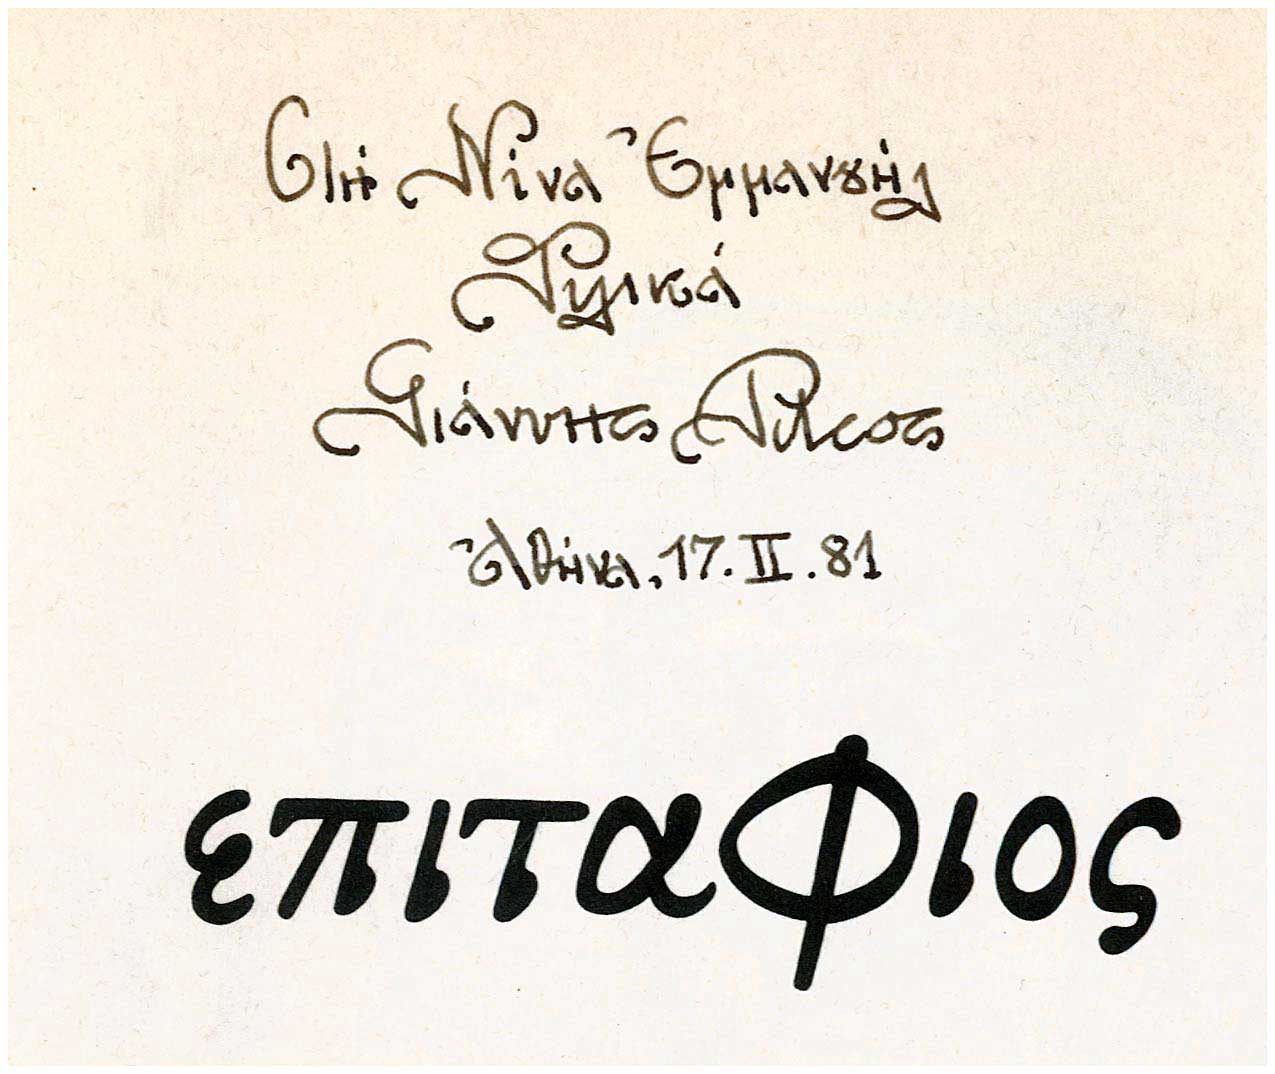 Στὴ Νίνα Ἐμμανουὴλ
Φιλικά
Γιάννης Ρίτσος
Ἀθήνα, 17.II.81
επιταΦιος